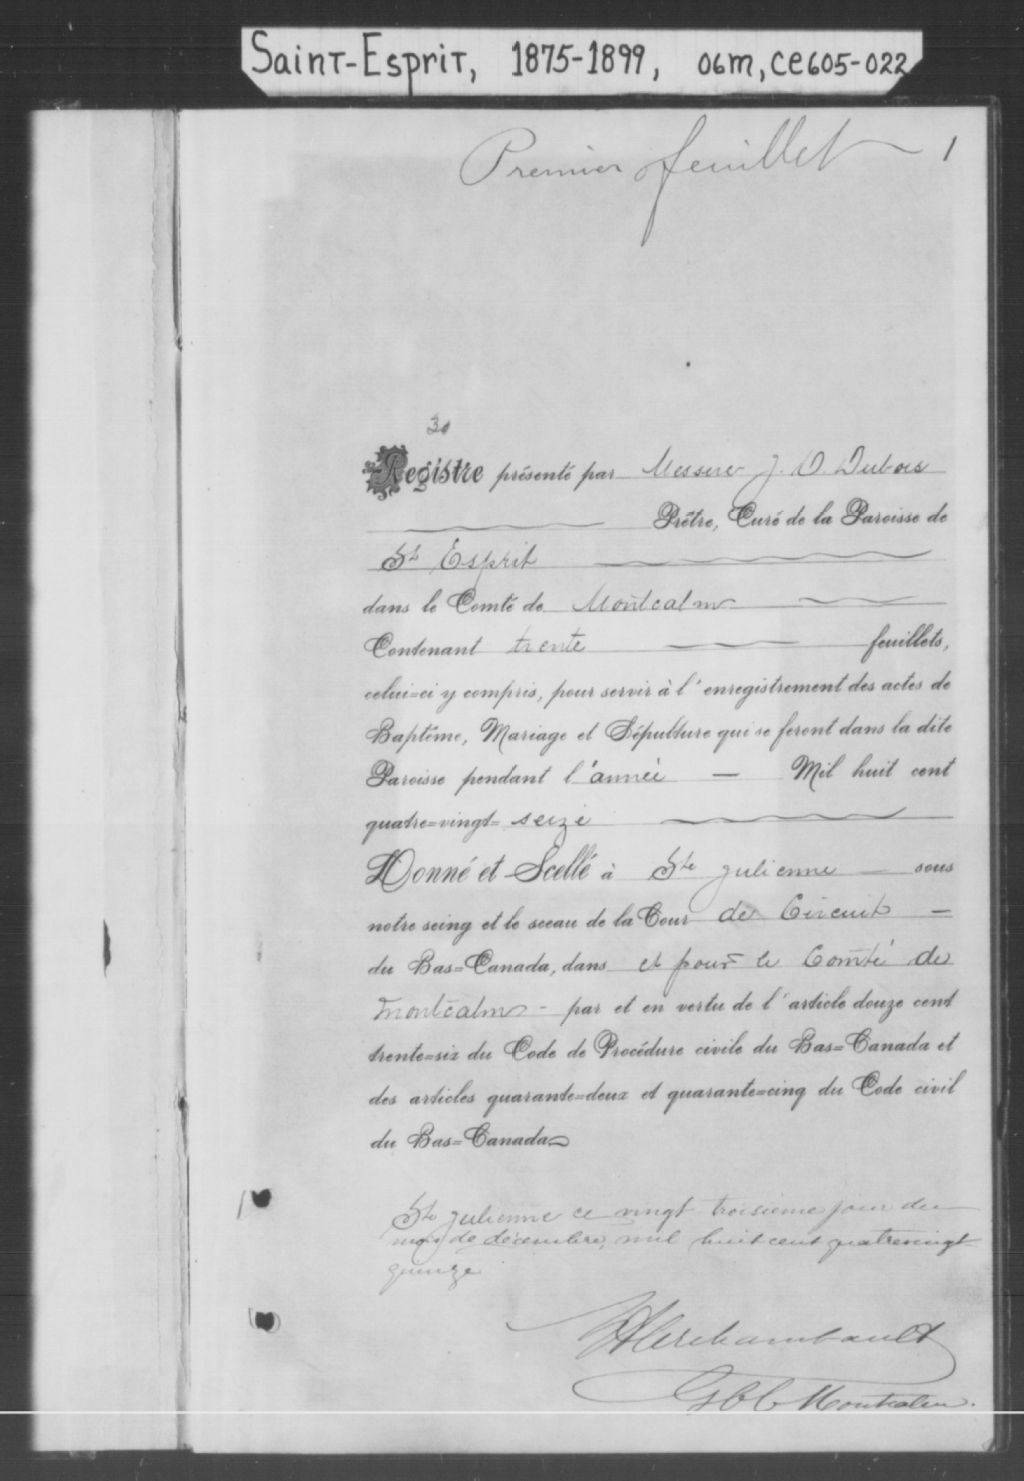 Saint-Esprit, 1875-1899, 06m, CE605-022
Premier feuillet 1
30
Registre présenté par Messire J. O Dubois
Prêtre, Curé de la Paroisse de
St Esprit
dans le Comté de Montcalm
Contenant trente feuillets,
celui-ci y compris, pour servir à l'enregistrement des actes de
Baptême, Mariage et Sépulture qui se feront dans la dite
Paroisse pendant l'année — Mil huit cent
quatre-vingt- seize
Donné et Scellé à Ste Julienne — sous
notre seing et le sceau de la Cour de Circuit —
du Bas-Canada, dans et pour le Comté de
Montcalm - par et en vertu de l'article douze cent
trente-six du Code de Procédure civile du Bas-Canada et
des articles quarante-deux et quarante-cinq du Code civil
du Bas-Canada
Ste Julienne ce vingt troisieme jour du
mois de décembre, mil huit cent quatrevingt-
quinze
Archambault
Montcalm.